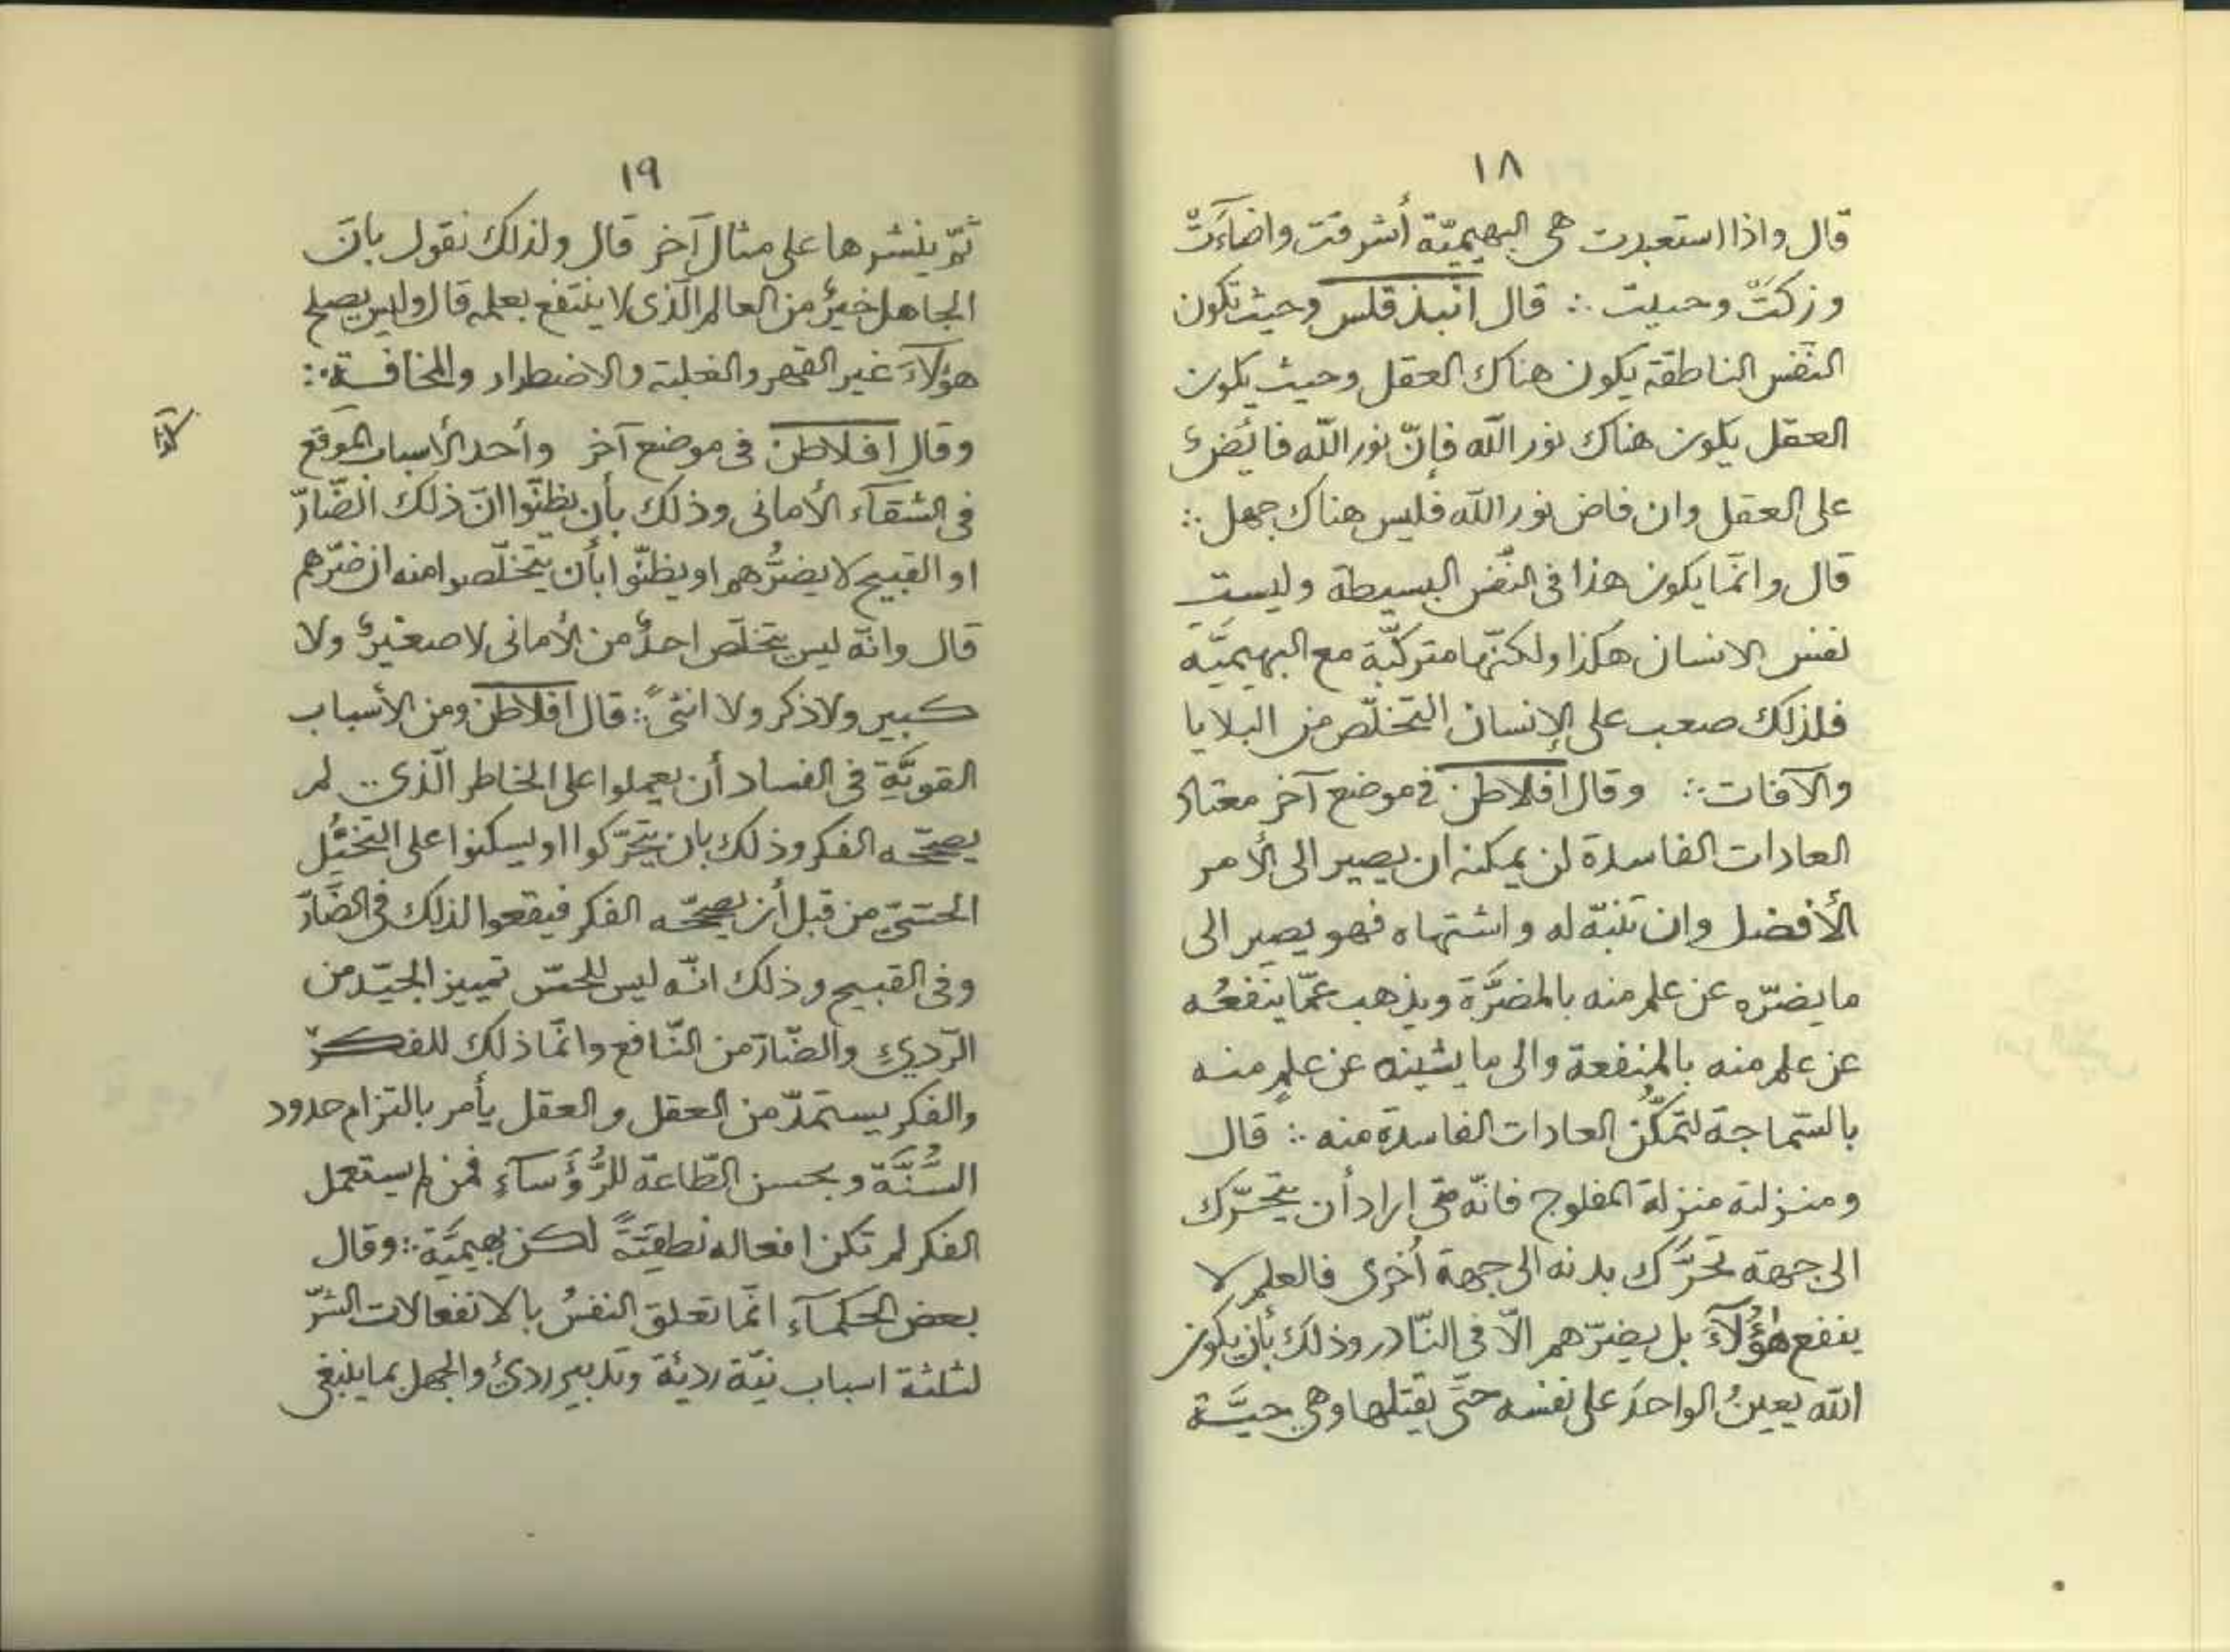 ١٨
قال واذا استعبدت هى البهيميّة أشرقت واضاءَتْ
وزكتْ وحييت ∴ قال انبذقلس وحيث تكون
النفس الناطقة يكون هناك العقل وحيث يكون
العقل يكون هناك نور الله فإنّ نور الله فائضٌ
على العقل وان فاض نور الله فليس هناك جهل ∴
قال وانّما يكون هذا فى النفس البسيطة وليست
نفس الانسان هكذا ولكنّها متركّبة مع البهيميّه
فلذلك صعب على الإنسان التخلّص من البلايا
والآفات ∴ وقال افلاطن فى موضع آخر معتاد
العادات الفاسدة لن يمكنه ان يصير الى الأمر
الأفضل وان تنبّه له واشتهاه فهو يصير الى
ما يضرّه عن علم منه بالمضرَّة ويذهب عمّا ينفعُه
عن علم منه بالمنفعة والى ما يشينه عن علمٍ منه
بالسّماجة لتمكُّن العادات الفاسدة منه ∴ قال
ومنزلته منزلة المفلوج فانّه متى اراد أن يتحرّك
الى جهة تحرَّك بدنه الى جهة أُخرى فالعلم لا
ينفع هؤُلآءَ بل يضرّهم الّا فى النّادر وذلك بأن يكون
الله يعينُ الواحدَ على نفسه حتّى يقتلها وهى حيَّة
١٩
ثمّ ينشرها على مثال آخر قال ولذلك نقول بانّ
الجاهل خيرٌ من العالم الّذى لا ينتفع بعلمه قال وليس يصلح
هؤلآءَ غير القهر والغلبة والاضطرار والمخافة ∴
وقال افلاطن فى موضع آخر وأحد الأسباب الموقع
كذا
فى الشقآء الأمانى وذلك بأن يظنّوا انّ ذلك الضّارّ
او القبيح لا يضرُّهم او يظنّوا بأن يتخلّصوا منه ان ضرّهم
قال وانّه ليس يتخلّص احدٌ من الأمانى لا صغيرٌ ولا
كبير ولا ذكر ولا انثىً ∴ قال افلاطن ومن الأسباب
القويَّةِ فى الفساد أن يعملوا على الخاطر الّذى .. لم
يصحّحه الفكر وذلك بان يتحرّكوا او يسكنوا على التخيُّل
الحسّىّ من قبل أن يصحّحه الفكر فيقعوا لذلك فى الضَّارّ
وفى القبيح وذلك انّه ليس للحسّ تمييز الجيّد من
الرّديءِ والضّارّ من النّافع وانّما ذلك للفكر
والفكر يستمدّ من العقل والعقل يأمر بالتزام حدود
السُّنَّة وبحسن الطّاعة للرُّؤَسآءِ فمن لم يستعمل
الفكر لم تكن افعاله نطقيّةً لكن بهيميَّة ∴ وقال
بعض الحكمآء انّما تعلق النفسُ بالانفعالات الشرّ
لثلثة اسباب نيّة رديّة وتدبير ردئ والجهل بما ينبغى